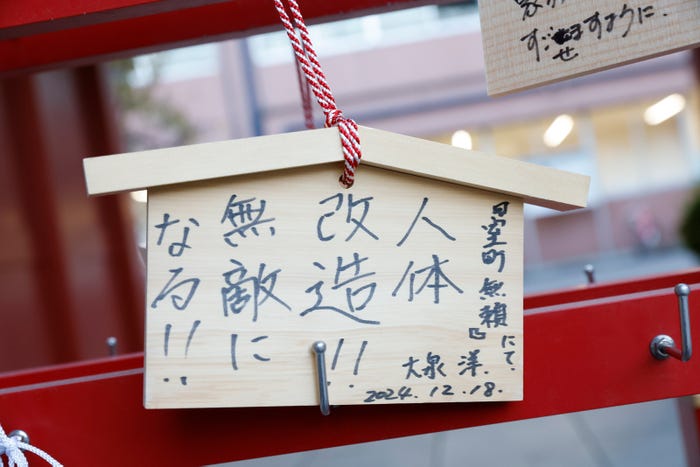 『室町無頼』にて。
人体
改造!!
無敵に
なる!!
大泉 洋.
2024.12.18.
すごせますように.